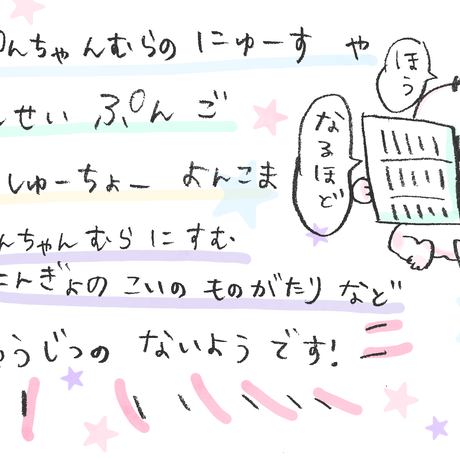 んちゃんむらの にゅーす や
せい ぷんご
しゅーちょー よんこま
んちゃんむらにすむ
にんぎょの こいの ものがたり など
ゅうじつの ないようです!
ほう
なるほど